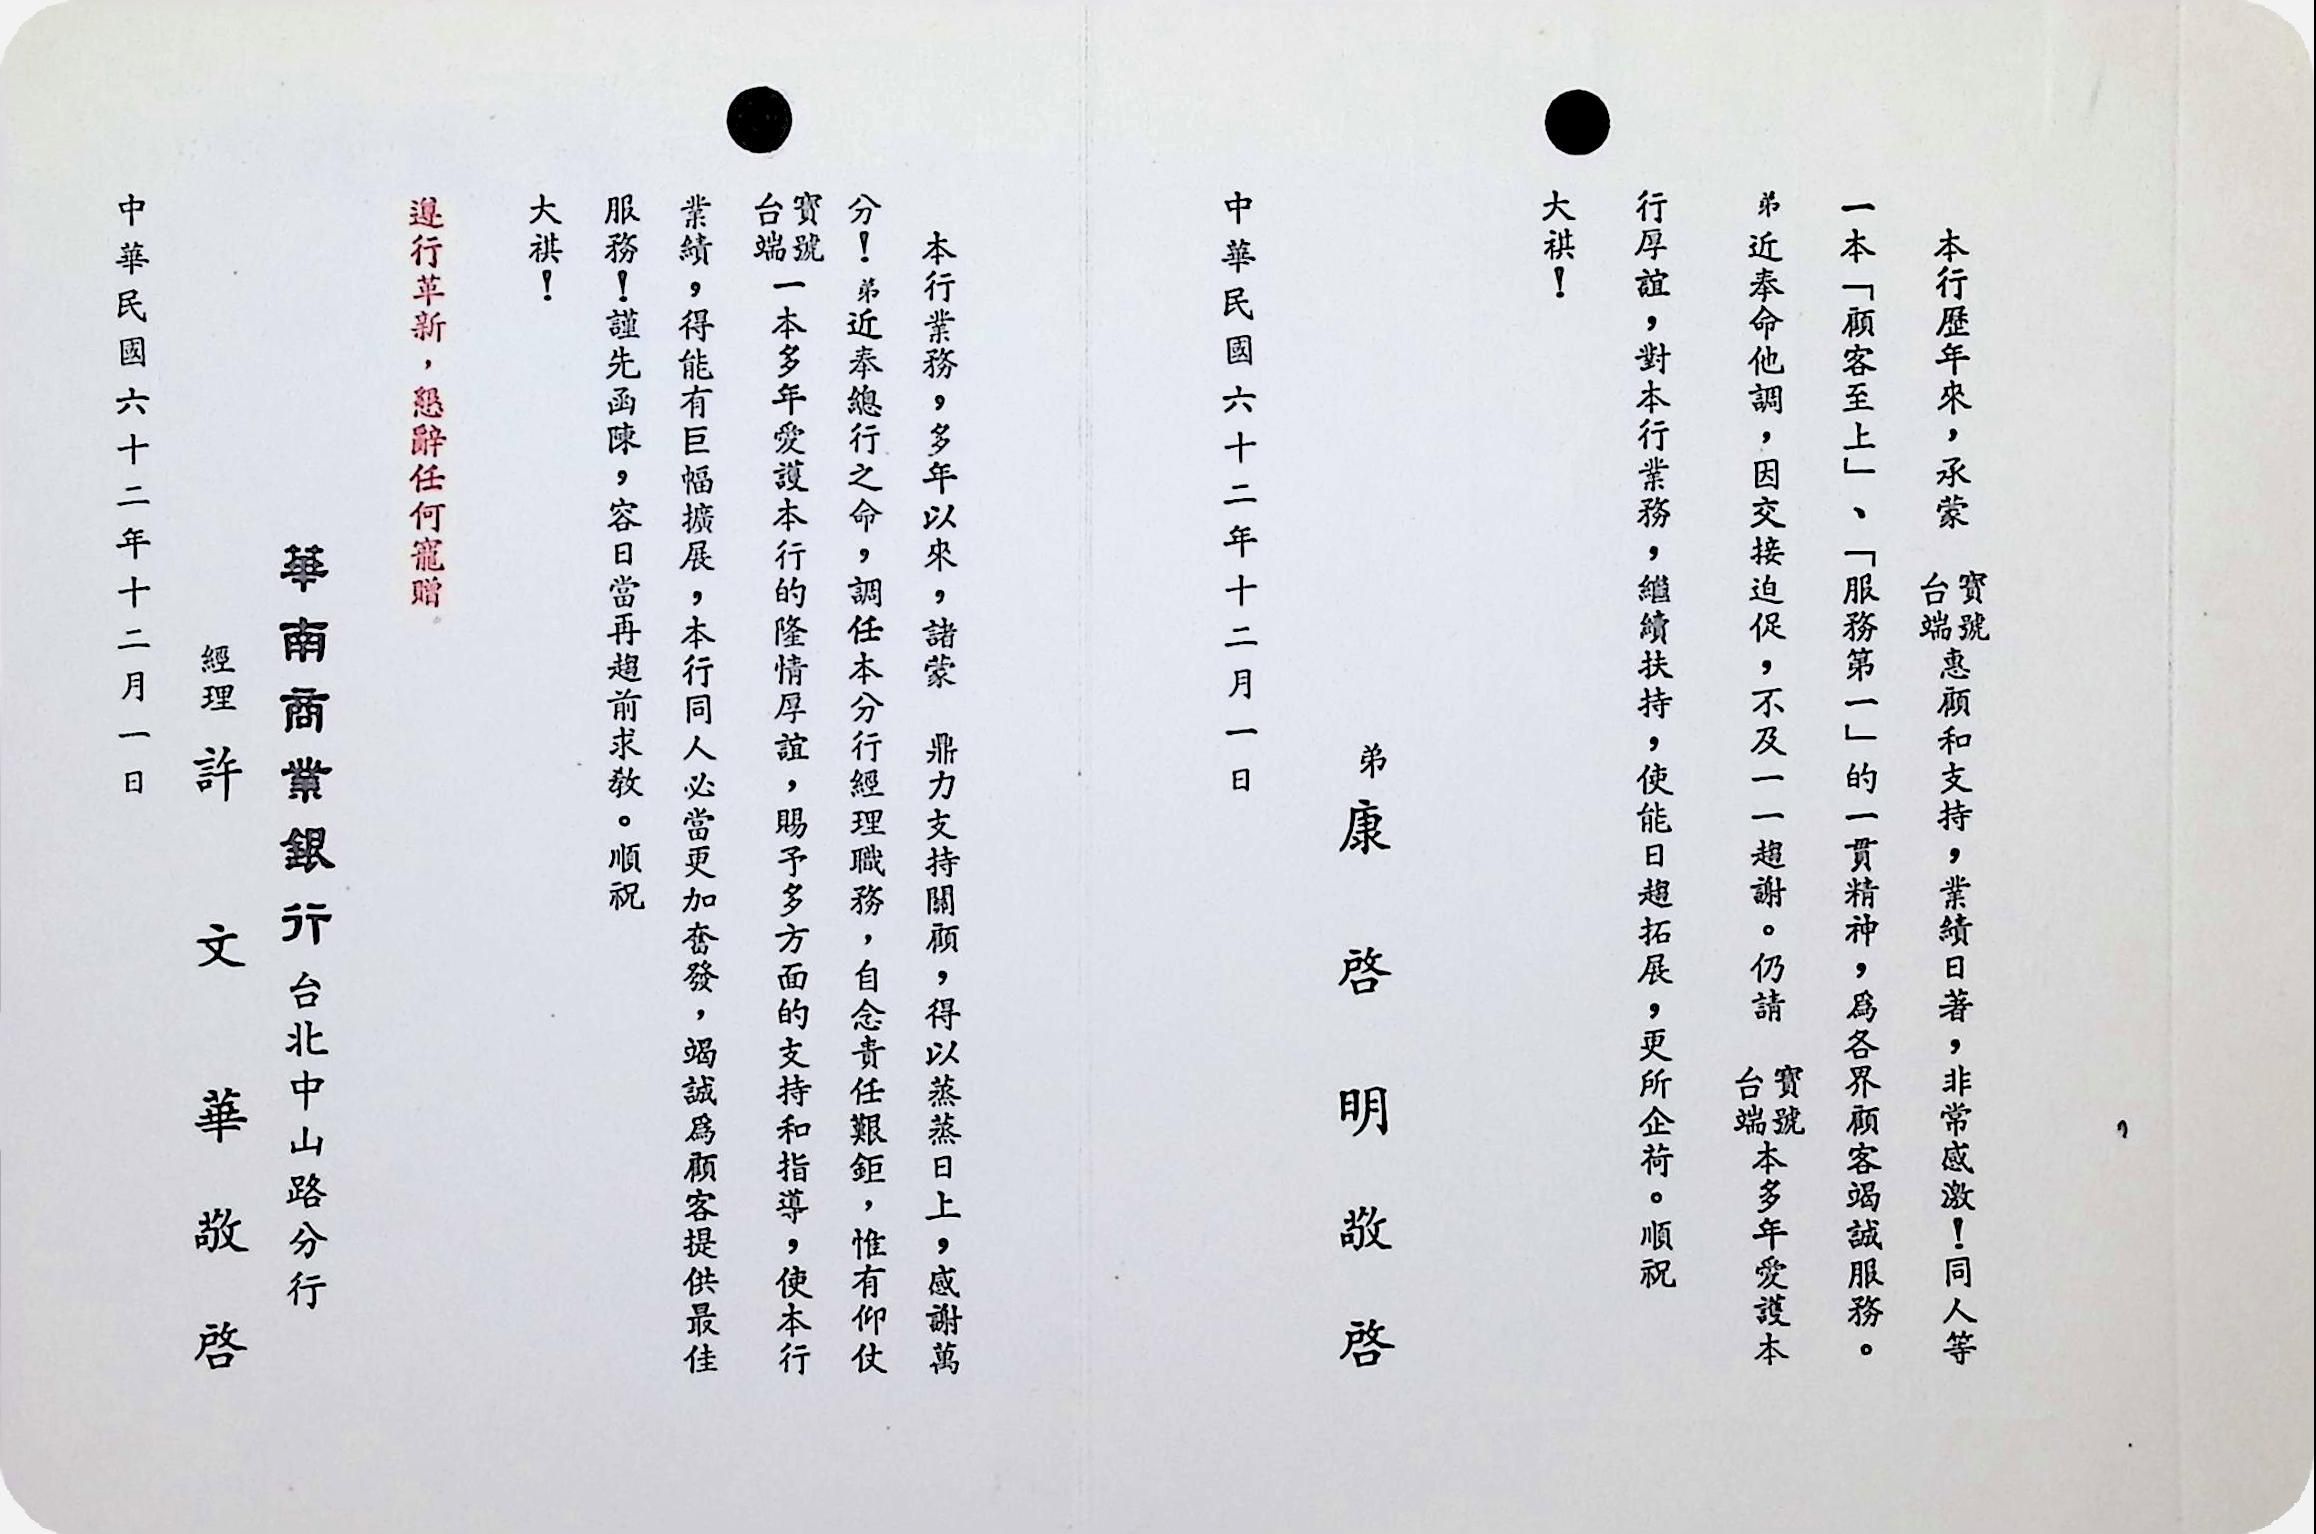 本行歷年來，承蒙　寶號台端惠顧和支持，業績日著，非常感激！同人等
一本「顧客至上」、「服務第一」的一貫精神，爲各界顧客竭誠服務。
弟近奉命他調，因交接迫促，不及一一趨謝。仍請　寶號台端本多年愛護本
行厚誼，對本行業務，繼續扶持，使能日趨拓展，更所企荷。順祝
大祺！
弟康啓明敬啓
中華民國六十二年十二月一日
本行業務，多年以來，諸蒙　鼎力支持關顧，得以蒸蒸日上，感謝萬
分！弟近奉總行之命，調任本分行經理職務，自念責任艱鉅，惟有仰仗
寶號台端一本多年愛護本行的隆情厚誼，賜予多方面的支持和指導，使本行
業績，得能有巨幅擴展，本行同人必當更加奮發，竭誠爲顧客提供最佳
服務！謹先函陳，容日當再趨前求教。順祝
大祺！
遵行革新，懇辭任何寵贈
華南商業銀行台北中山路分行
經理許文華敬啓
中華民國六十二年十二月一日